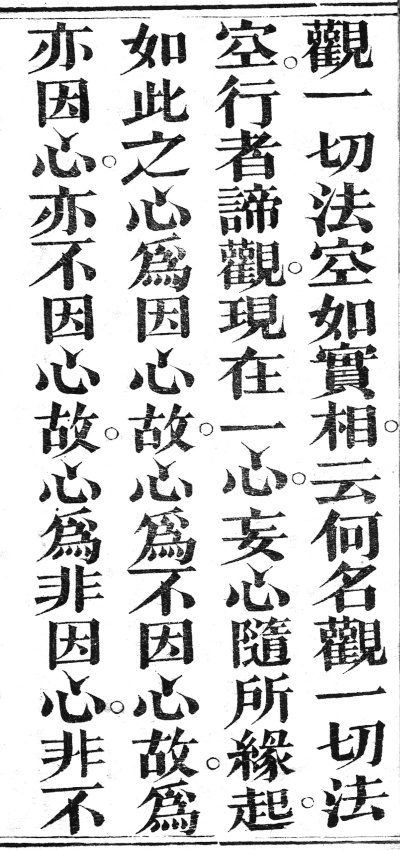 觀一切法空如實相。云何名觀一切法
空。行者諦觀。現在一心。妄心隨所緣起。
如此之心為因心故。心為不因心故。為
亦因心。亦不因心故。心為非因心。非不